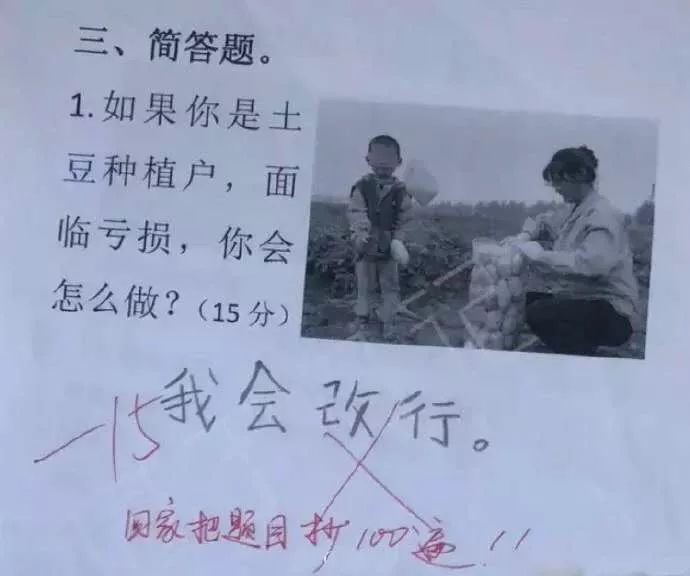 三、简答题。
1.如果你是土
豆种植户，面
临亏损，你会
怎么做？（15分）
我会改行。
-15
回家把题目抄100遍！！